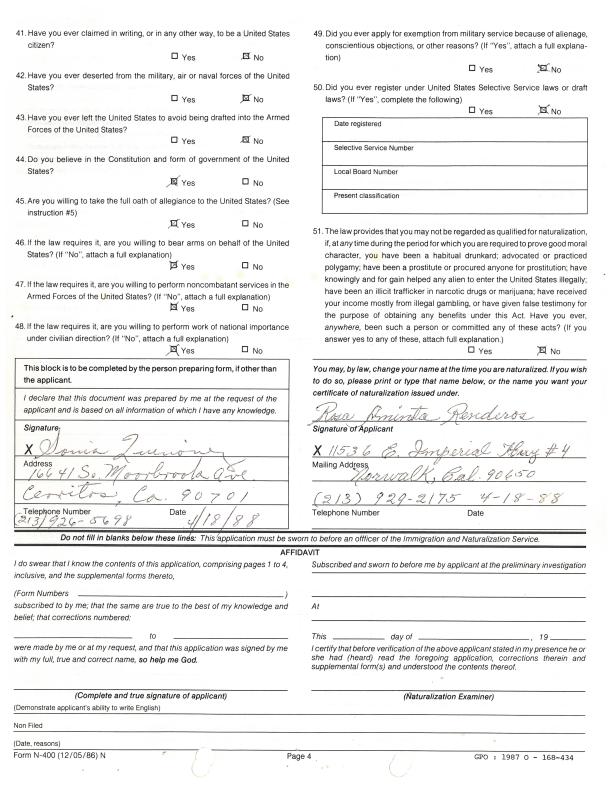 41. Have you ever claimed in writing, or in any other way, to be a United States
citizen?
☐ Yes ☒ No
42. Have you ever deserted from the military, air or naval forces of the United
States?
☐ Yes ☒ No
43. Have you ever left the United States to avoid being drafted into the Armed
Forces of the United States?
☐ Yes ☒ No
44. Do you believe in the Constitution and form of government of the United
States?
☒ Yes ☐ No
45. Are you willing to take the full oath of allegiance to the United States? (See
instruction #5)
☒ Yes ☐ No
46. If the law requires it, are you willing to bear arms on behalf of the United
States? (If "No", attach a full explanation)
☒ Yes ☐ No
47. If the law requires it, are you willing to perform noncombatant services in the
Armed Forces of the United States? (If "No", attach a full explanation)
☒ Yes ☐ No
48. If the law requires it, are you willing to perform work of national importance
under civilian direction? (If "No", attach a full explanation)
☒ Yes ☐ No
This block is to be completed by the person preparing form, if other than
the applicant.
I declare that this document was prepared by me at the request of the
applicant and is based on all information of which I have any knowledge.
Signature
X Sonia Quiñonez
Address
16641 So. Moorbrook Ave.
Cerritos, Ca. 90701
Telephone Number Date
(213) 926-5698 4/18/88
49. Did you ever apply for exemption from military service because of alienage,
conscientious objections, or other reasons? (If "Yes", attach a full explana-
tion)
☐ Yes ☒ No
50. Did you ever register under United States Selective Service laws or draft
laws? (If "Yes", complete the following)
☐ Yes ☒ No
Date registered
Selective Service Number
Local Board Number
Present classification
51. The law provides that you may not be regarded as qualified for naturalization,
if, at any time during the period for which you are required to prove good moral
character, you have been a habitual drunkard; advocated or practiced
polygamy; have been a prostitute or procured anyone for prostitution; have
knowingly and for gain helped any alien to enter the United States illegally;
have been an illicit trafficker in narcotic drugs or marijuana; have received
your income mostly from illegal gambling, or have given false testimony for
the purpose of obtaining any benefits under this Act. Have you ever,
anywhere, been such a person or committed any of these acts? (If you
answer yes to any of these, attach full explanation.)
☐ Yes ☒ No
You may, by law, change your name at the time you are naturalized. If you wish
to do so, please print or type that name below, or the name you want your
certificate of naturalization issued under.
Rosa Aminta Renderos
Signature of Applicant
X 11536 E. Imperial Hwy #4
Mailing Address
Norwalk, Cal. 90650
(213) 929-2175 4-18-88
Telephone Number Date
Do not fill in blanks below these lines: This application must be sworn to before an officer of the Immigration and Naturalization Service.
AFFIDAVIT
I do swear that I know the contents of this application, comprising pages 1 to 4,
inclusive, and the supplemental forms thereto,
(Form Numbers )
subscribed to by me; that the same are true to the best of my knowledge and
belief; that corrections numbered:
to
were made by me or at my request, and that this application was signed by me
with my full, true and correct name, so help me God.
(Complete and true signature of applicant)
Subscribed and sworn to before me by applicant at the preliminary investigation
At
This day of , 19
I certify that before verification of the above applicant stated in my presence he or
she had (heard) read the foregoing application, corrections therein and
supplemental form(s) and understood the contents thereof.
(Naturalization Examiner)
(Demonstrate applicant's ability to write English)
Non Filed
(Date, reasons)
Form N-400 (12/05/86) N Page 4 GPO : 1987 O - 168-434